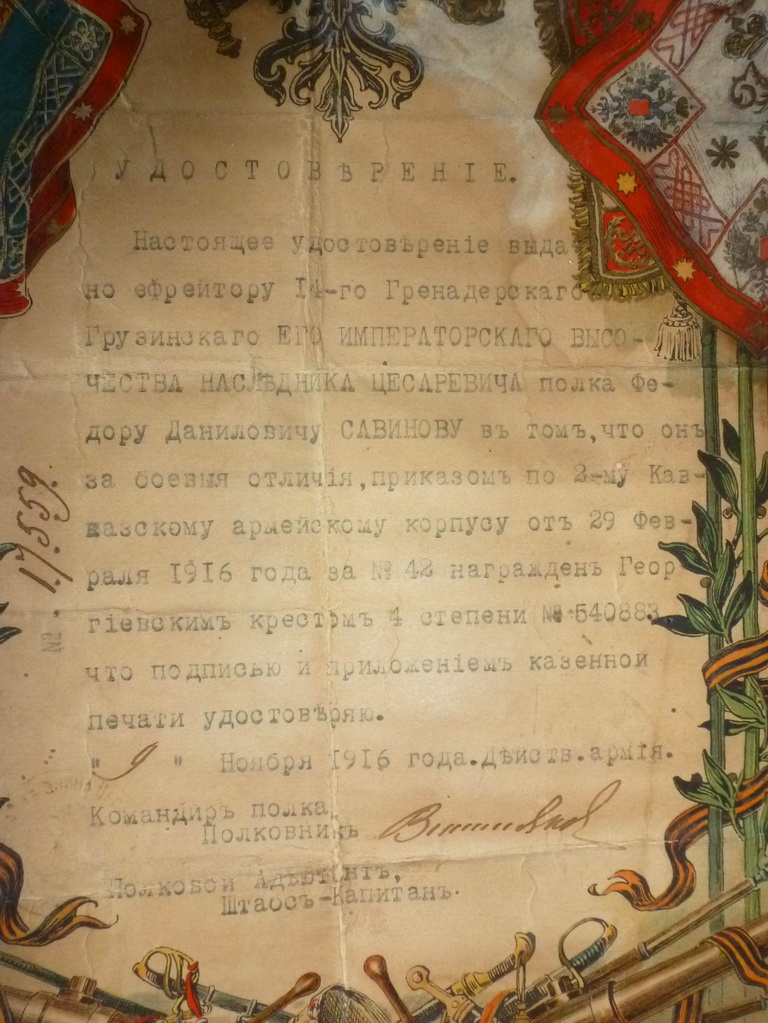 УДОСТОВѢРЕНІЕ.
Настоящее удостовѣреніе выда
но ефрейтору 14-го Гренадерскаго
Грузинскаго ЕГО ИМПЕРАТОРСКАГО ВЫСО-
ЧЕСТВА НАСЛѢДНИКА ЦЕСАРЕВИЧА полка Фе-
дору Даниловичу САВИНОВУ въ томъ,что онъ
за боевыя отличія,приказомъ по 2-му Кав-
казскому армейскому корпусу отъ 29 Фев-
раля 1916 года за № 42 награжденъ Геор
гіевскимъ крестомъ 4 степени № 540883
что подписью и приложеніемъ казенной
печати удостовѣряю.
" 9 " Ноября 1916 года.Дѣйств.армія.
Командиръ полка,
Полковникъ
Полковой Адъютантъ,
Штабсъ-Капитанъ.
№. 17559.